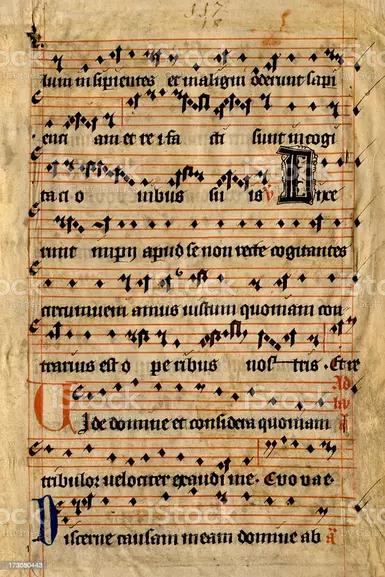 117
lium insipientes et maligni oderunt sapi
enci am et rei fa cti sunt in cogi
taci o nibus su is ℣ Dixe
runt impii apud se non recte cogitantes
circumveniamus iustum quoniam con
trarius est o peribus nostris . Et re
Ad lau
Vide domine et considera quoniam a
tribulor velociter exaudi me . Evovae .
Discerne causam meam domine ab a
iStock
Credit: 
173080443